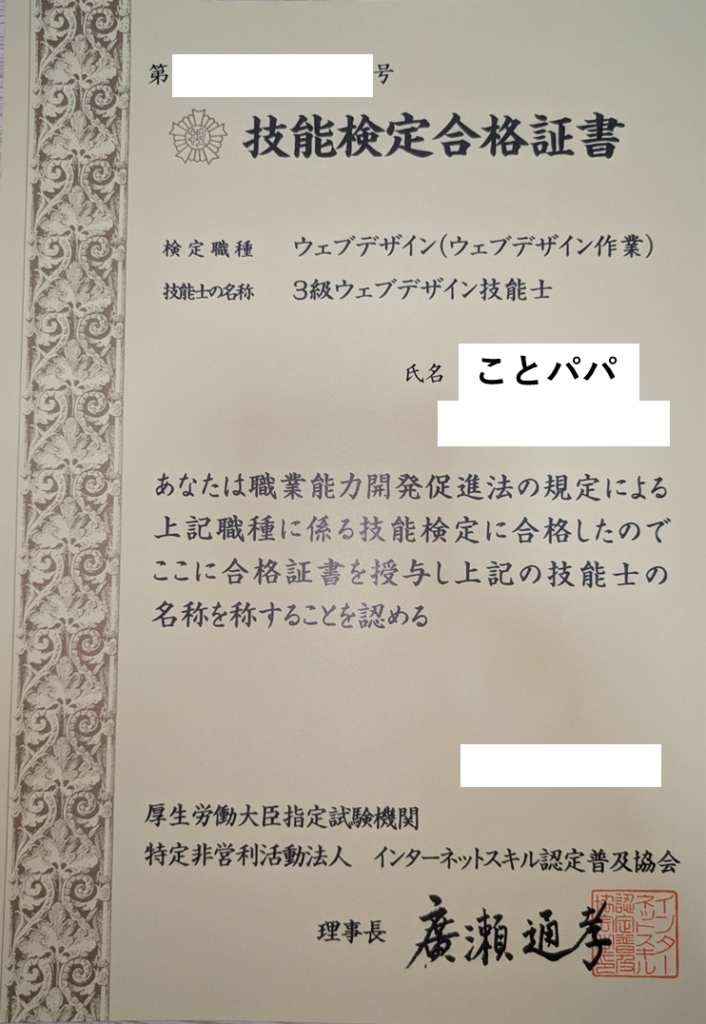 第 号
技能検定合格証書
検定職種 ウェブデザイン(ウェブデザイン作業)
技能士の名称 3級ウェブデザイン技能士
氏名 ことパパ
あなたは職業能力開発促進法の規定による
上記職種に係る技能検定に合格したので
ここに合格証書を授与し上記の技能士の
名称を称することを認める
厚生労働大臣指定試験機関
特定非営利活動法人 インターネットスキル認定普及協会
理事長 廣瀬通孝
インター
ネットスキル
認定普及